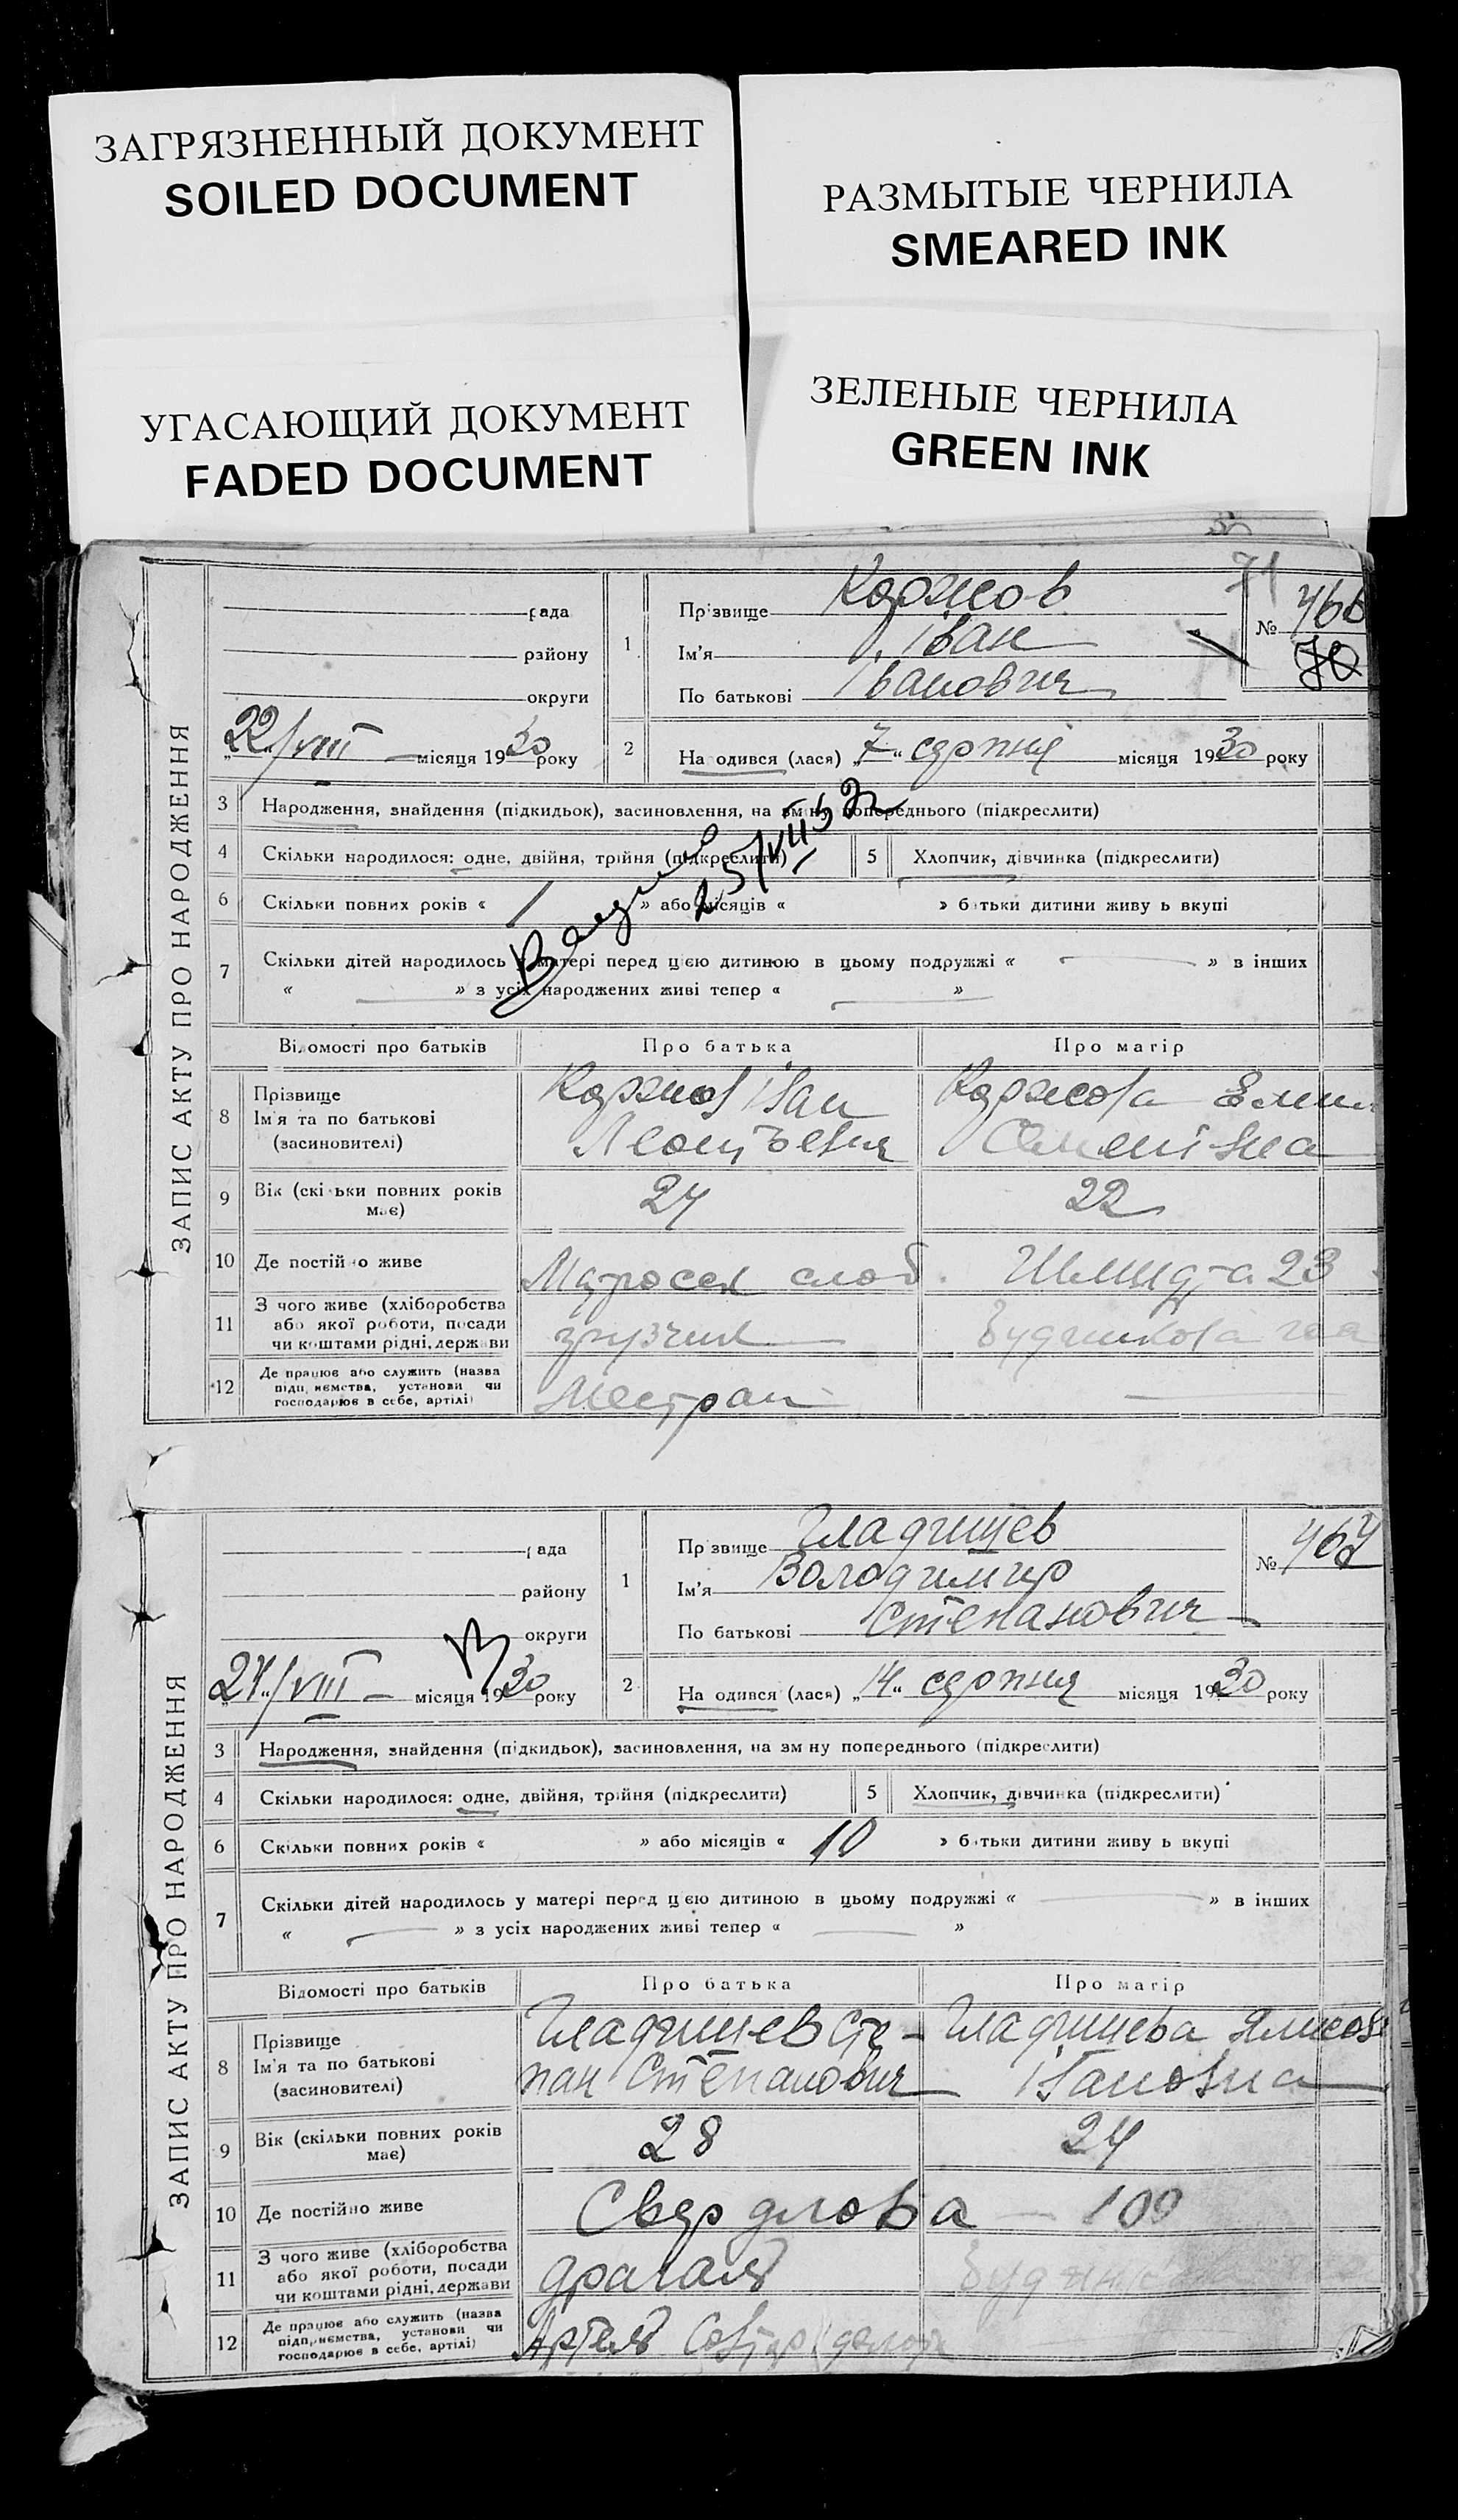 ЗАГРЯЗНЕННЫЙ ДОКУМЕНТ
SOILED DOCUMENT
РАЗМЫТЫЕ ЧЕРНИЛА
SMEARED INK
УГАСАЮЩИЙ ДОКУМЕНТ
FADED DOCUMENT
ЗЕЛЕНЫЕ ЧЕРНИЛА
GREEN INK
71
ЗАПИС АКТУ ПРО НАРОДЖЕННЯ
рада
району
округи
22/VIII місяця 1930 року
1 Прізвище Коржов
Ім'я Іван
По батькові Іванович
№ 466
70
2 На одився (лася) „7“ серпня місяця 1930 року
3 Народження, знайдення (підкидьок), засиновлення, на зм ну попереднього (підкреслити)
4 Скільки народилося: одне, двійня, трійня (підкреслити)
5 Хлопчик, дівчинка (підкреслити)
6 Скільки повних років « 1 » або місяців « » б тьки дитини живу ь вкупі
7 Скільки дітей народилось у матері перед цією дитиною в цьому подружжі « — » в інших
« — » з усіх народжених живі тепер « — »
25/VII 32
Відомості про батьків Про батька Про матір
8 Прізвище Ім'я та по батькові (засновителі)
Коржов Іван
Леонтьевич
Коржова
Семенівна
9 Вік (скі ьки повних років має) 24 22
10 Де постій о живе Матросск слоб. Шмидта 23
11 З чого живе (хліборобства або якої роботи, посади чи коштами рідні, держави
грузчик
12 Де працює або служить (назва підп иємства, установи чи господарює в себе, артілі)
Местран —
ЗАПИС АКТУ ПРО НАРОДЖЕННЯ
рада
району
округи
24/VIII — місяця 1930 року
1 Пр звище Гладчищев
Ім'я Володимир
По батькові Степанович
№ 467
2 На одився (лася) „14“ серпня місяця 1930 року
3 Народження, знайдення (підкидьок), засиновлення, на зм ну попереднього (підкреслити)
4 Скільки народилося: одне, двійня, трійня (підкреслити)
5 Хлопчик, дівчинка (підкреслити)
6 Скільки повних років « » або місяців « 10 » б тьки дитини живу ь вкупі
7 Скільки дітей народилось у матері перед цією дитиною в цьому подружжі « — » в інших
« — » з усіх народжених живі тепер « — »
Відомості про батьків Про батька Про матір
8 Прізвище Ім'я та по батькові (засиновителі)
Гладчищев Сте-
пан Степанович
Гладчищева
Івановна
9 Вік (скільки повних років має) 28 24
10 Де постійно живе Свердлова — 100
11 З чого живе (хліборобства або якої роботи, посади чи коштами рідні, держави
драгаль
12 Де працює або служить (назва підприємства, установи чи господарює в себе, артілі)
Артель